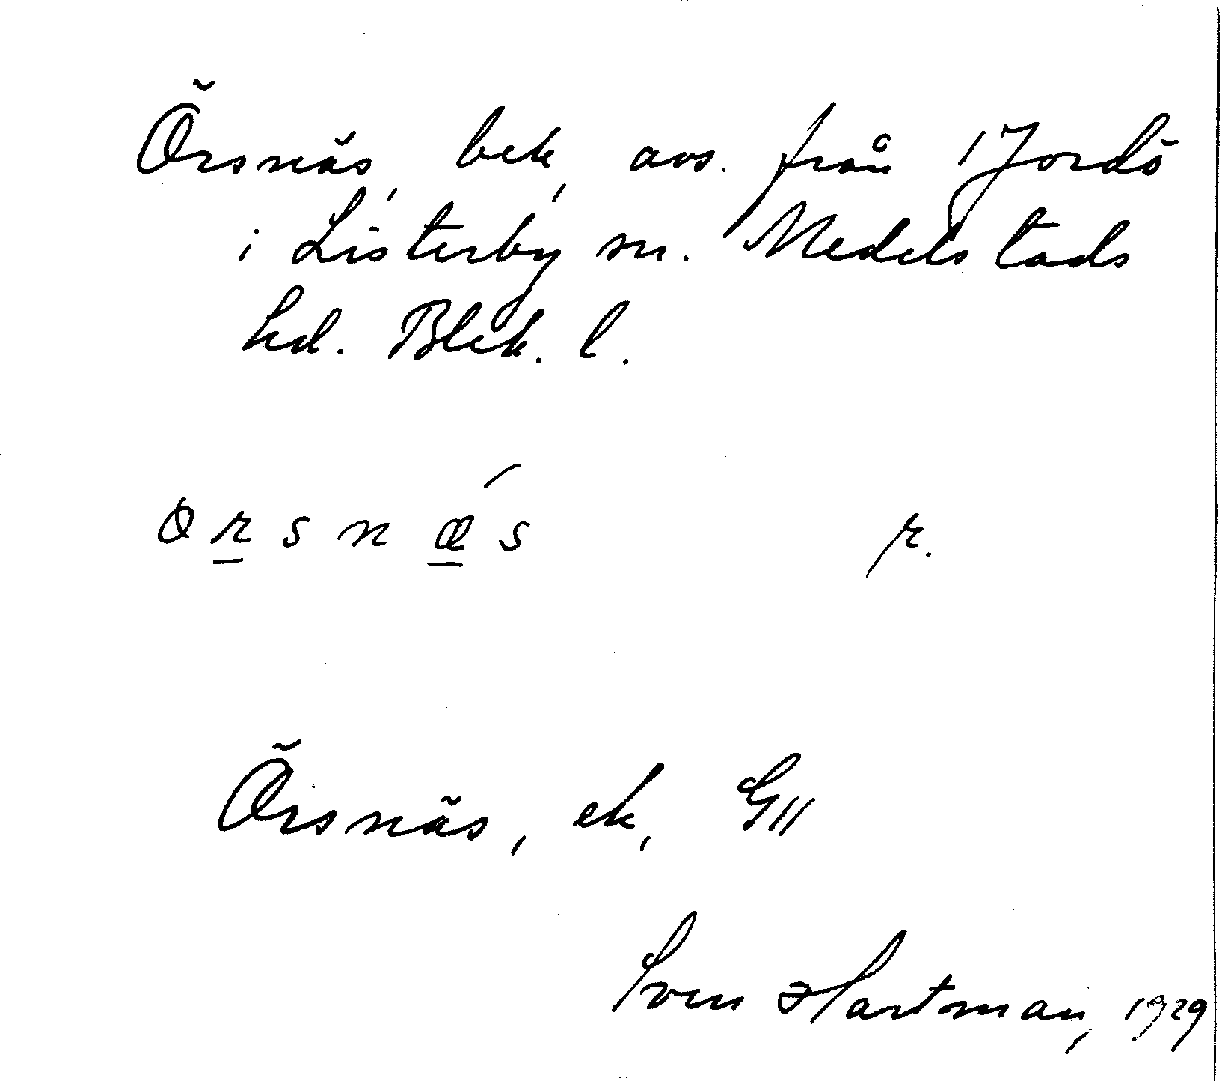 Örsnäs, bek, avs. från 1 Jordö
i Listerby sn. Medelstads
hd. Blek. l.
ørsnǽs r.
Örsnäs, ek, G11
Sven Hartman, 1929